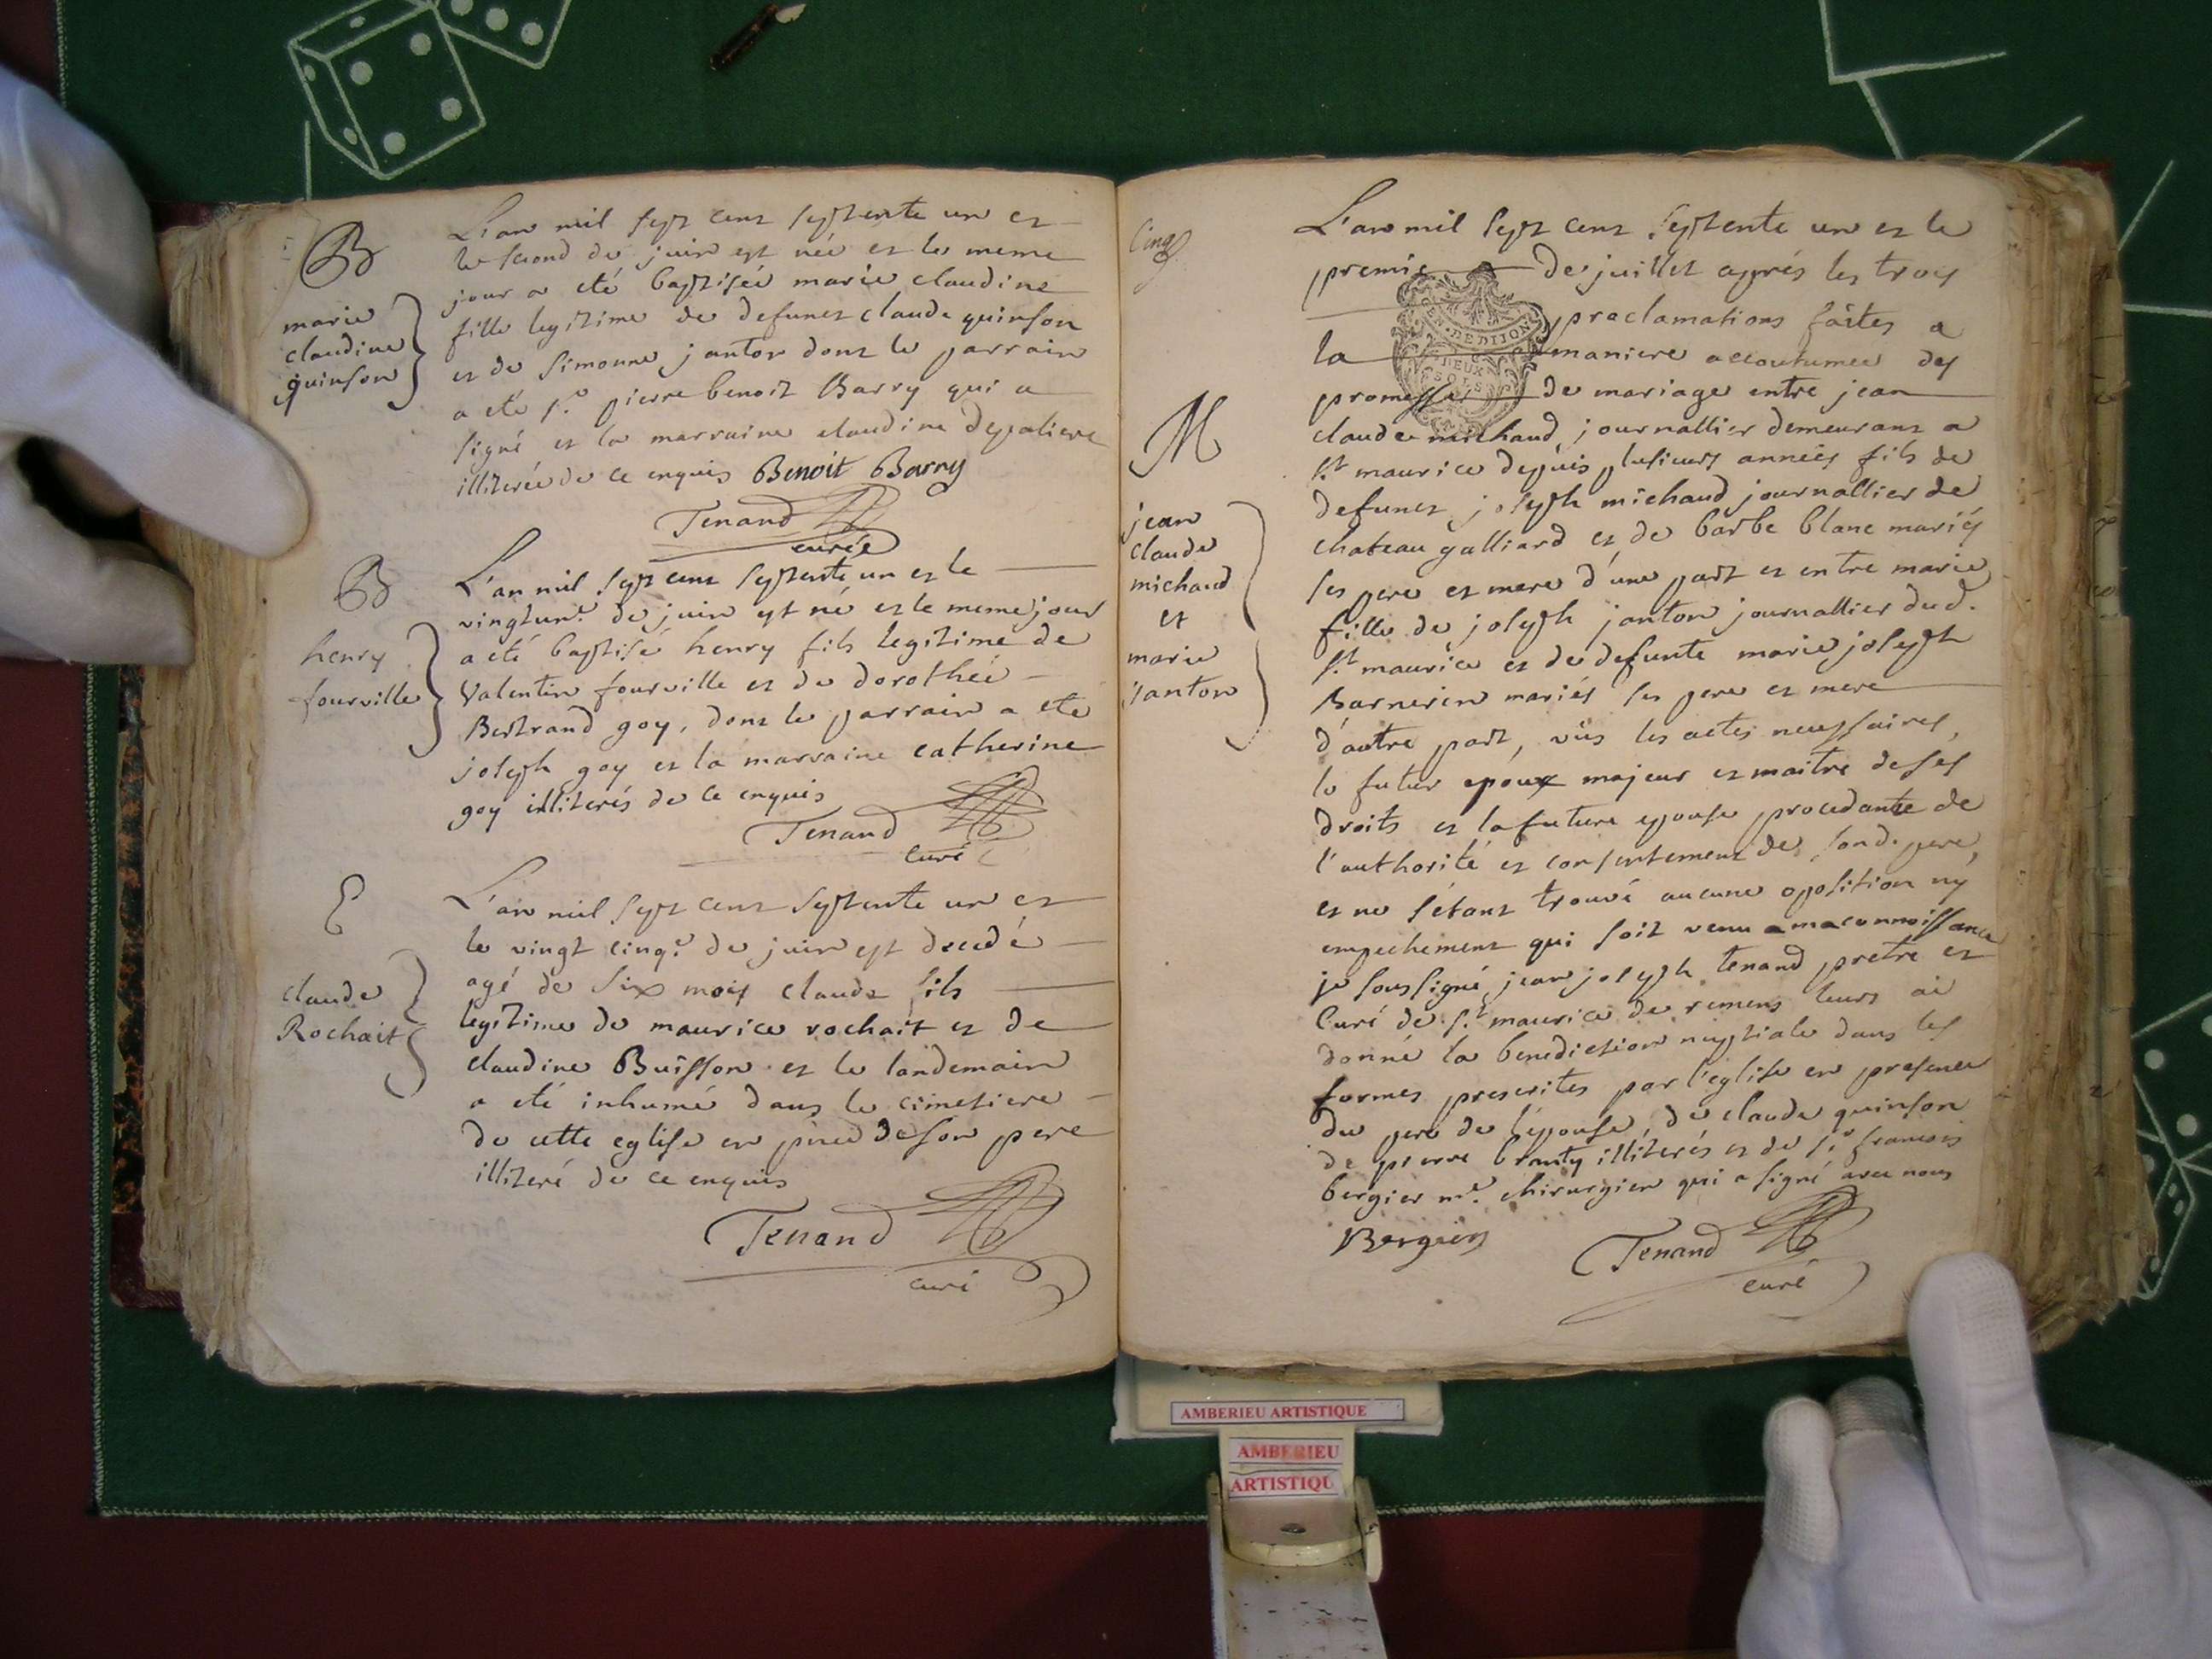 B
marie
claudine
quinson
L'an mil sept cent septente un et
le second de juin est née et le meme
jour a eté baptisée marie claudine
fille legitime de defunct claude quinson
et de simonne janton dont le parrain
a eté sr pierre benoit Barry qui a
signé et la marraine claudine
illiterée de ce enquis Benoit Barry
Tenand
curé
B
henry
fourville
L'an mil sept cent septente un et le
vingtun.e de juin est né et le meme jour
a eté baptisé henry fils legitime de
Valentin fourville et de dorothée
Bertrand goy, dont le parrain a eté
joseph goy et la marraine catherine
goy illiterés de ce enquis
Tenand
curé
E
claude
Rochait
L'an mil sept cent septente un et
le vingt cinq.e de juin est decedé
agé de six mois claude fils
legitime de maurice rochait et de
claudine Buisson et le landemain
a eté inhumé dans le cimetiere
de cette eglise en pnce de son pere
illiteré de ce enquis
Tenand
curé
cinq
M
jean
claude
michaud
et
marie
janton
L'an mil sept cent septente un et le
premier de juillet aprés les troys
proclamations faites a
la maniere accoutumée des
promesses de mariage entre jean
GEN. DE DIJON
DEUX
SOLS
claude michaud, journallier demeurant a
st maurice depuis plusieurs années fils de
defunct joseph michaud journallier de
chateau galliard et de barbe blanc mariés
ses pere et mere d'une part et entre marie
fille de joseph janton journallier dud.
st maurice et de defunte marie joseph
Barnerin mariés ses pere et mere
d'autre part, vûs les actes necessaires,
le futur epoux majeur et maitre de ses
droits et la future epouse procedante de
l'authorité et consentement de sond. pere,
et ne s'etant trouvé aucune oposition ny
empechement qui soit venu a ma connoissance
je soussigné jean joseph tenand pretre et
curé de st maurice de remens leurs ai
donné la benediction nuptiale dans les
formes prescrites par l'eglise en presence
du pere de l'epouse, de claude quinson
de pierre illiterés et de sr francois
bergier me. chirurgien qui a signé avec nous
Bergier
Tenand
curé
AMBERIEU ARTISTIQUE
AMBERIEU
ARTISTIQU